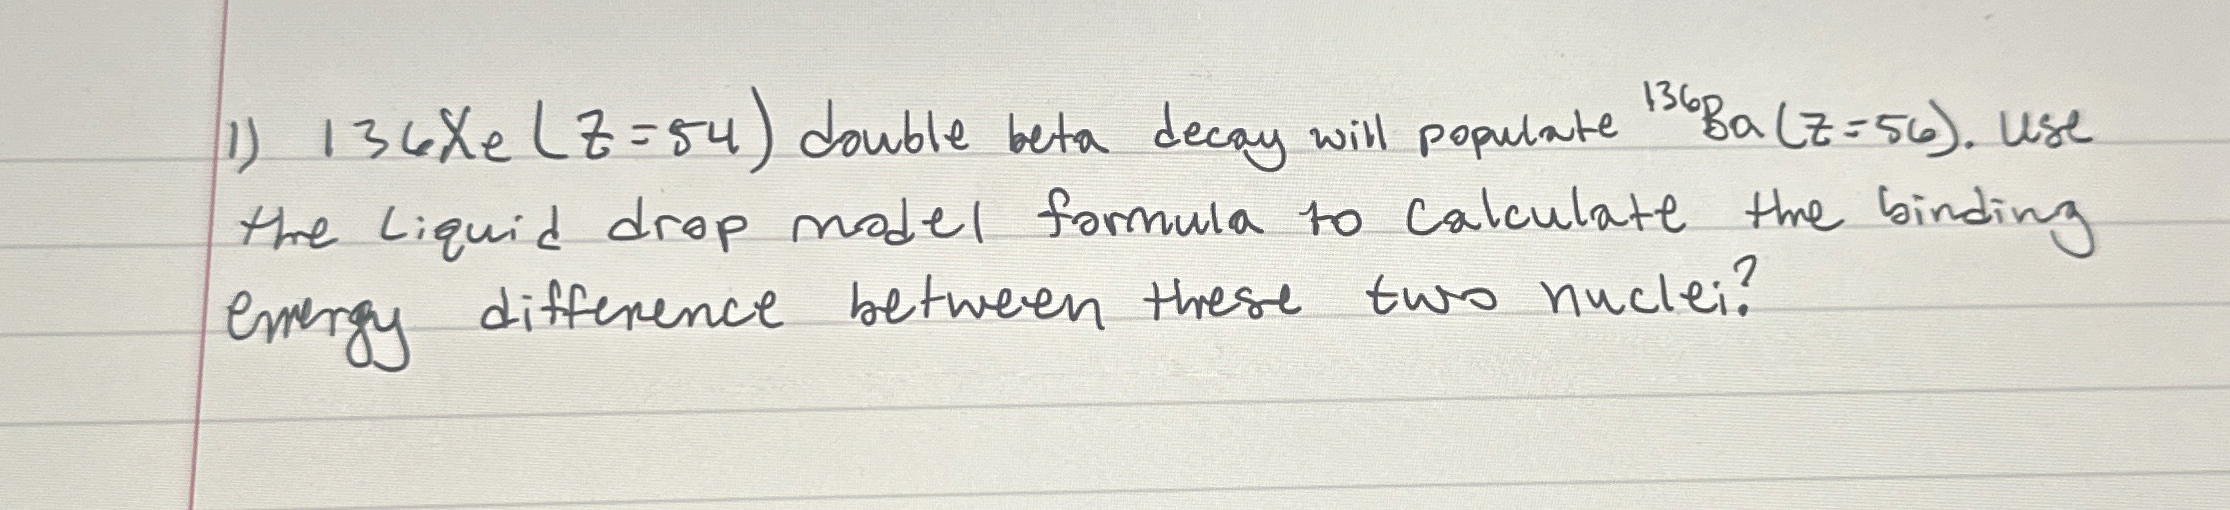 1) 136Xe (Z=54) double beta decay will populate ¹³⁶Ba (Z=56). Use
the Liquid drop model formula to calculate the binding
energy difference between these two nuclei?